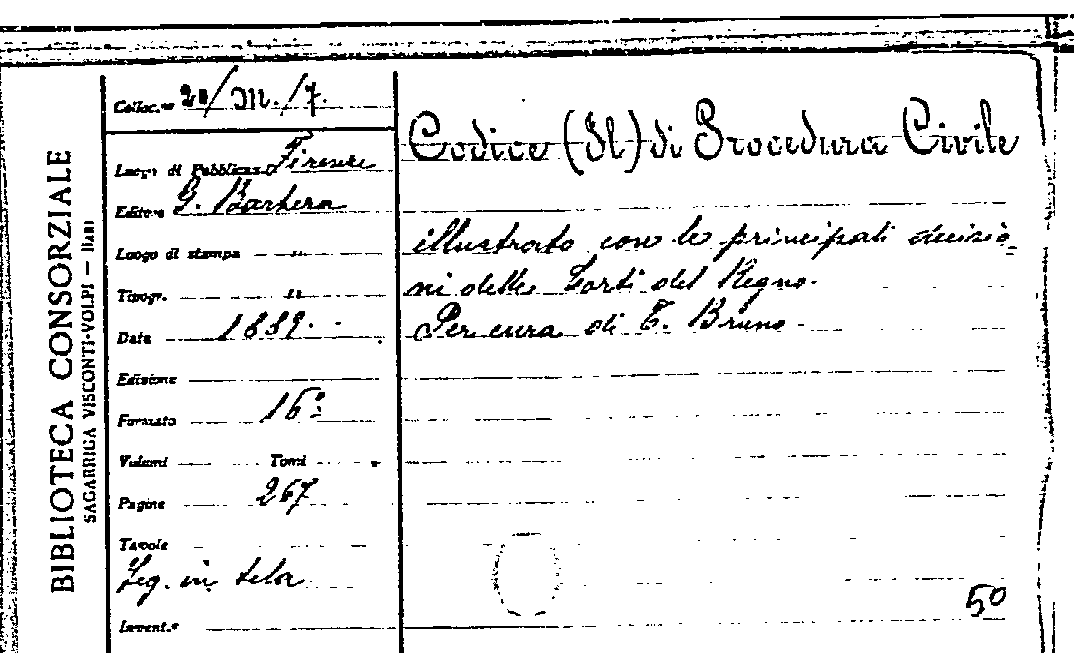 BIBLIOTECA CONSORZIALE
SAGARRIGA VISCONTI-VOLPI — Bari
Colloc.ne 20/M./7.
Luogo di Pubblicaz. Firenze
Editore G. Barbera
Luogo di stampa "
Tipogr. "
Data 1889.
Edizione
Formato 16º
Volumi Tomi
Pagine 267
Tavole
Leg. in tela
Invent.º
Codice (Il) di Procedura Civile
illustrato con le principali decisio-
ni delle Corti del Regno.
Per cura di T. Bruno
50